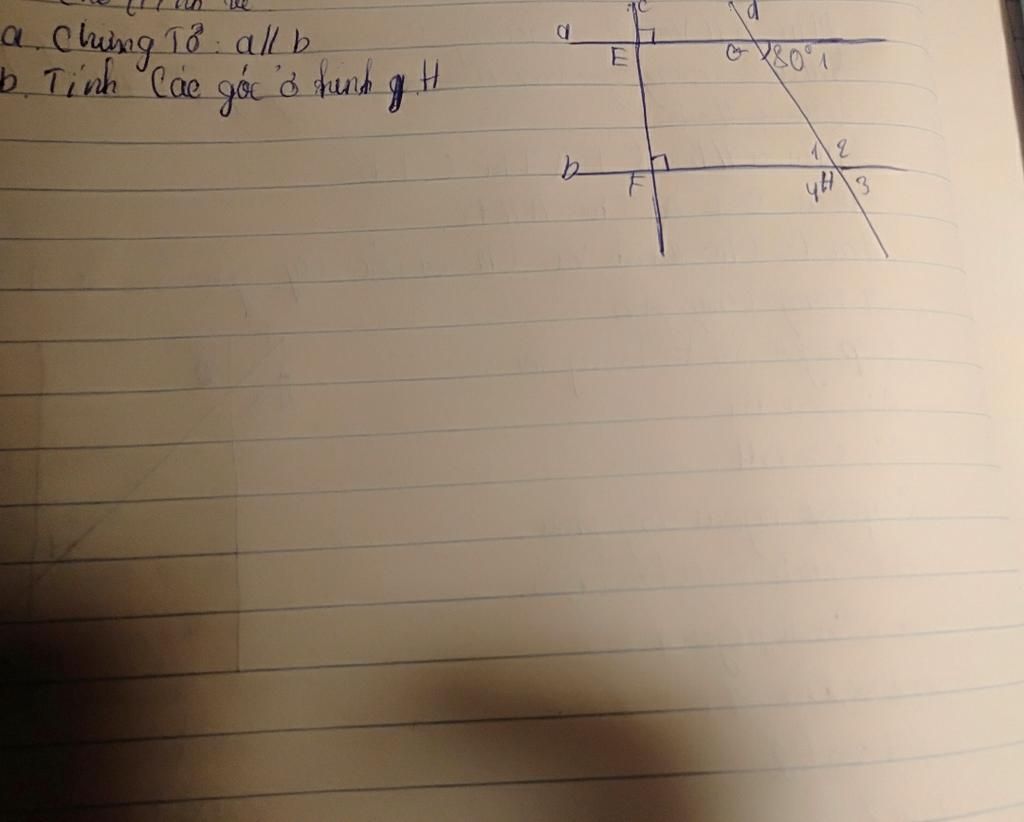 a. Chứng Tỏ: a // b
b. Tính Các góc ở đỉnh H
c
d
a
E
G
80° 1
b
F
1 2
4 H 3